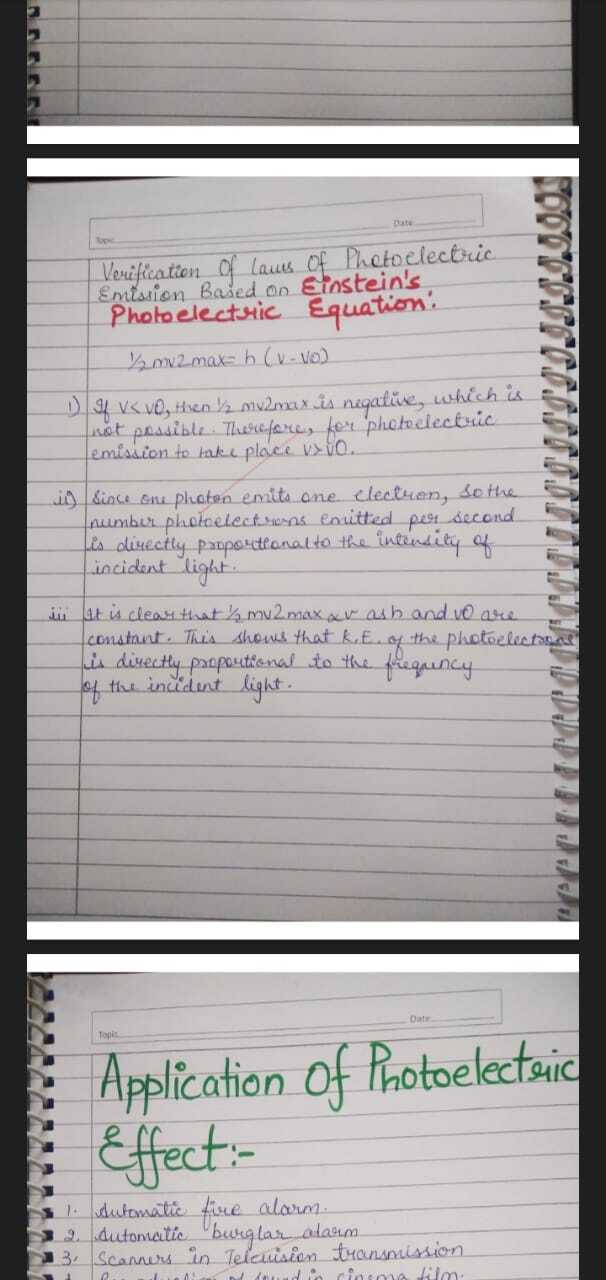 Topic
Date
Verification Of laws Of Photoelectric
Emission Based on Einstein's
Photoelectric Equation:
½ mv2max= h (v-v0)
i) If v<v0, then ½ mv2max is negative, which is
not possible. Therefore, for photoelectric
emission to take place v>v0.
ii) Since one photon emits one electron, so the
number photoelectrons emitted per second
is directly proportional to the intensity of
incident light.
iii It is clear that ½ mv2max α v as h and v0 are
constant. This shows that K.E. of the photoelectrons
is directly proportional to the freqency
of the incident light.
Topic
Date
Application Of Photoelectric
Effect:-
1. Automatic fire alarm.
2. Automatic burglar alarm
3. Scanners in Television transmission
sound in cinema film.